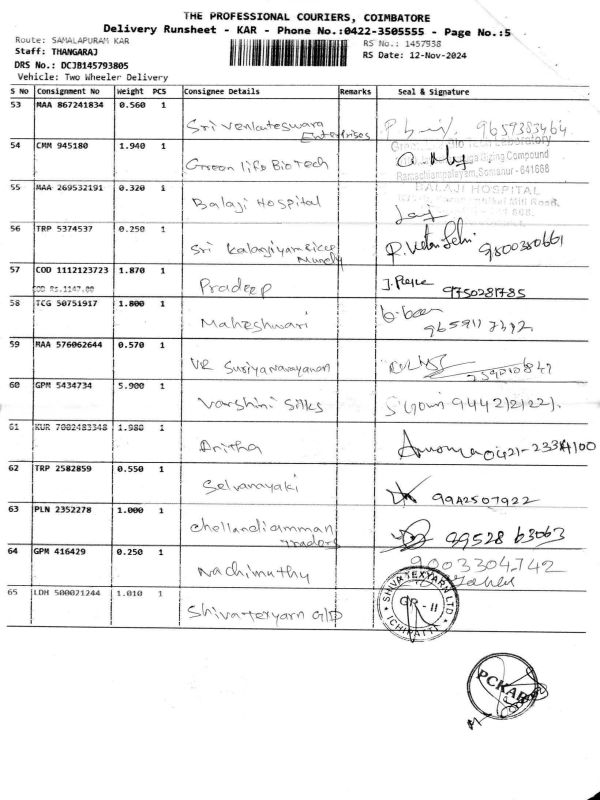 THE PROFESSIONAL COURIERS, COIMBATORE
Delivery Runsheet - KAR - Phone No.:0422-3505555 - Page No.:5
Route: SAMALAPURAM KAR
RS No.: 1457938
Staff: THANGARAJ
RS Date: 12-Nov-2024
DRS No.: DCJB145793805
Vehicle: Two Wheeler Delivery
S No Consignment No Weight PCS Consignee Details Remarks Seal & Signature
53 MAA 867241834 0.560 1
Sri Venkateswara Enterprises 9659383464
54 CMM 945180 1.940 1
Green life BioTech
Compound
Somanur - 641668
55 MAA 269532191 0.320 1
Balaji Hospital
BALAJI HOSPITAL
56 TRP 5374537 0.250 1
Sri Kalangiyam Ricce Mundy 9800380661
57 COD 1112123723 1.870 1
COD Rs.1147.00
Pradeep 9750281785
58 TCG 50751917 1.800 1
Maheshwari
59 MAA 576062644 0.570 1
VR Suriyanarayanan
60 GPM 5434734 5.900 1
Varshini Silks
61 KUR 7002483348 1.980 1
Anitha 0421-2334100
62 TRP 2582859 0.550 1
Selvanayaki 9942507922
63 PLN 2352278 1.000 1
Chellandiamman Traders 99528 63063
64 GPM 416429 0.250 1
Nachimuthu 9003304742
65 LDH 500021244 1.010 1
Shivatexyarn
SHIVA TEXYARN LTD
PCKAR